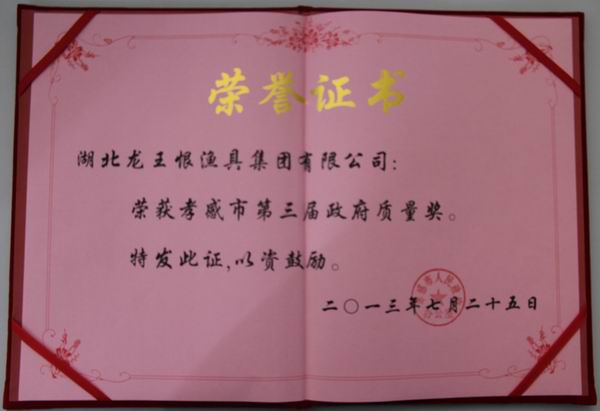 荣誉证书
湖北龙王恨渔具集团有限公司:
荣获孝感市第三届政府质量奖。
特发此证,以资鼓励。
二〇一三年七月二十五日